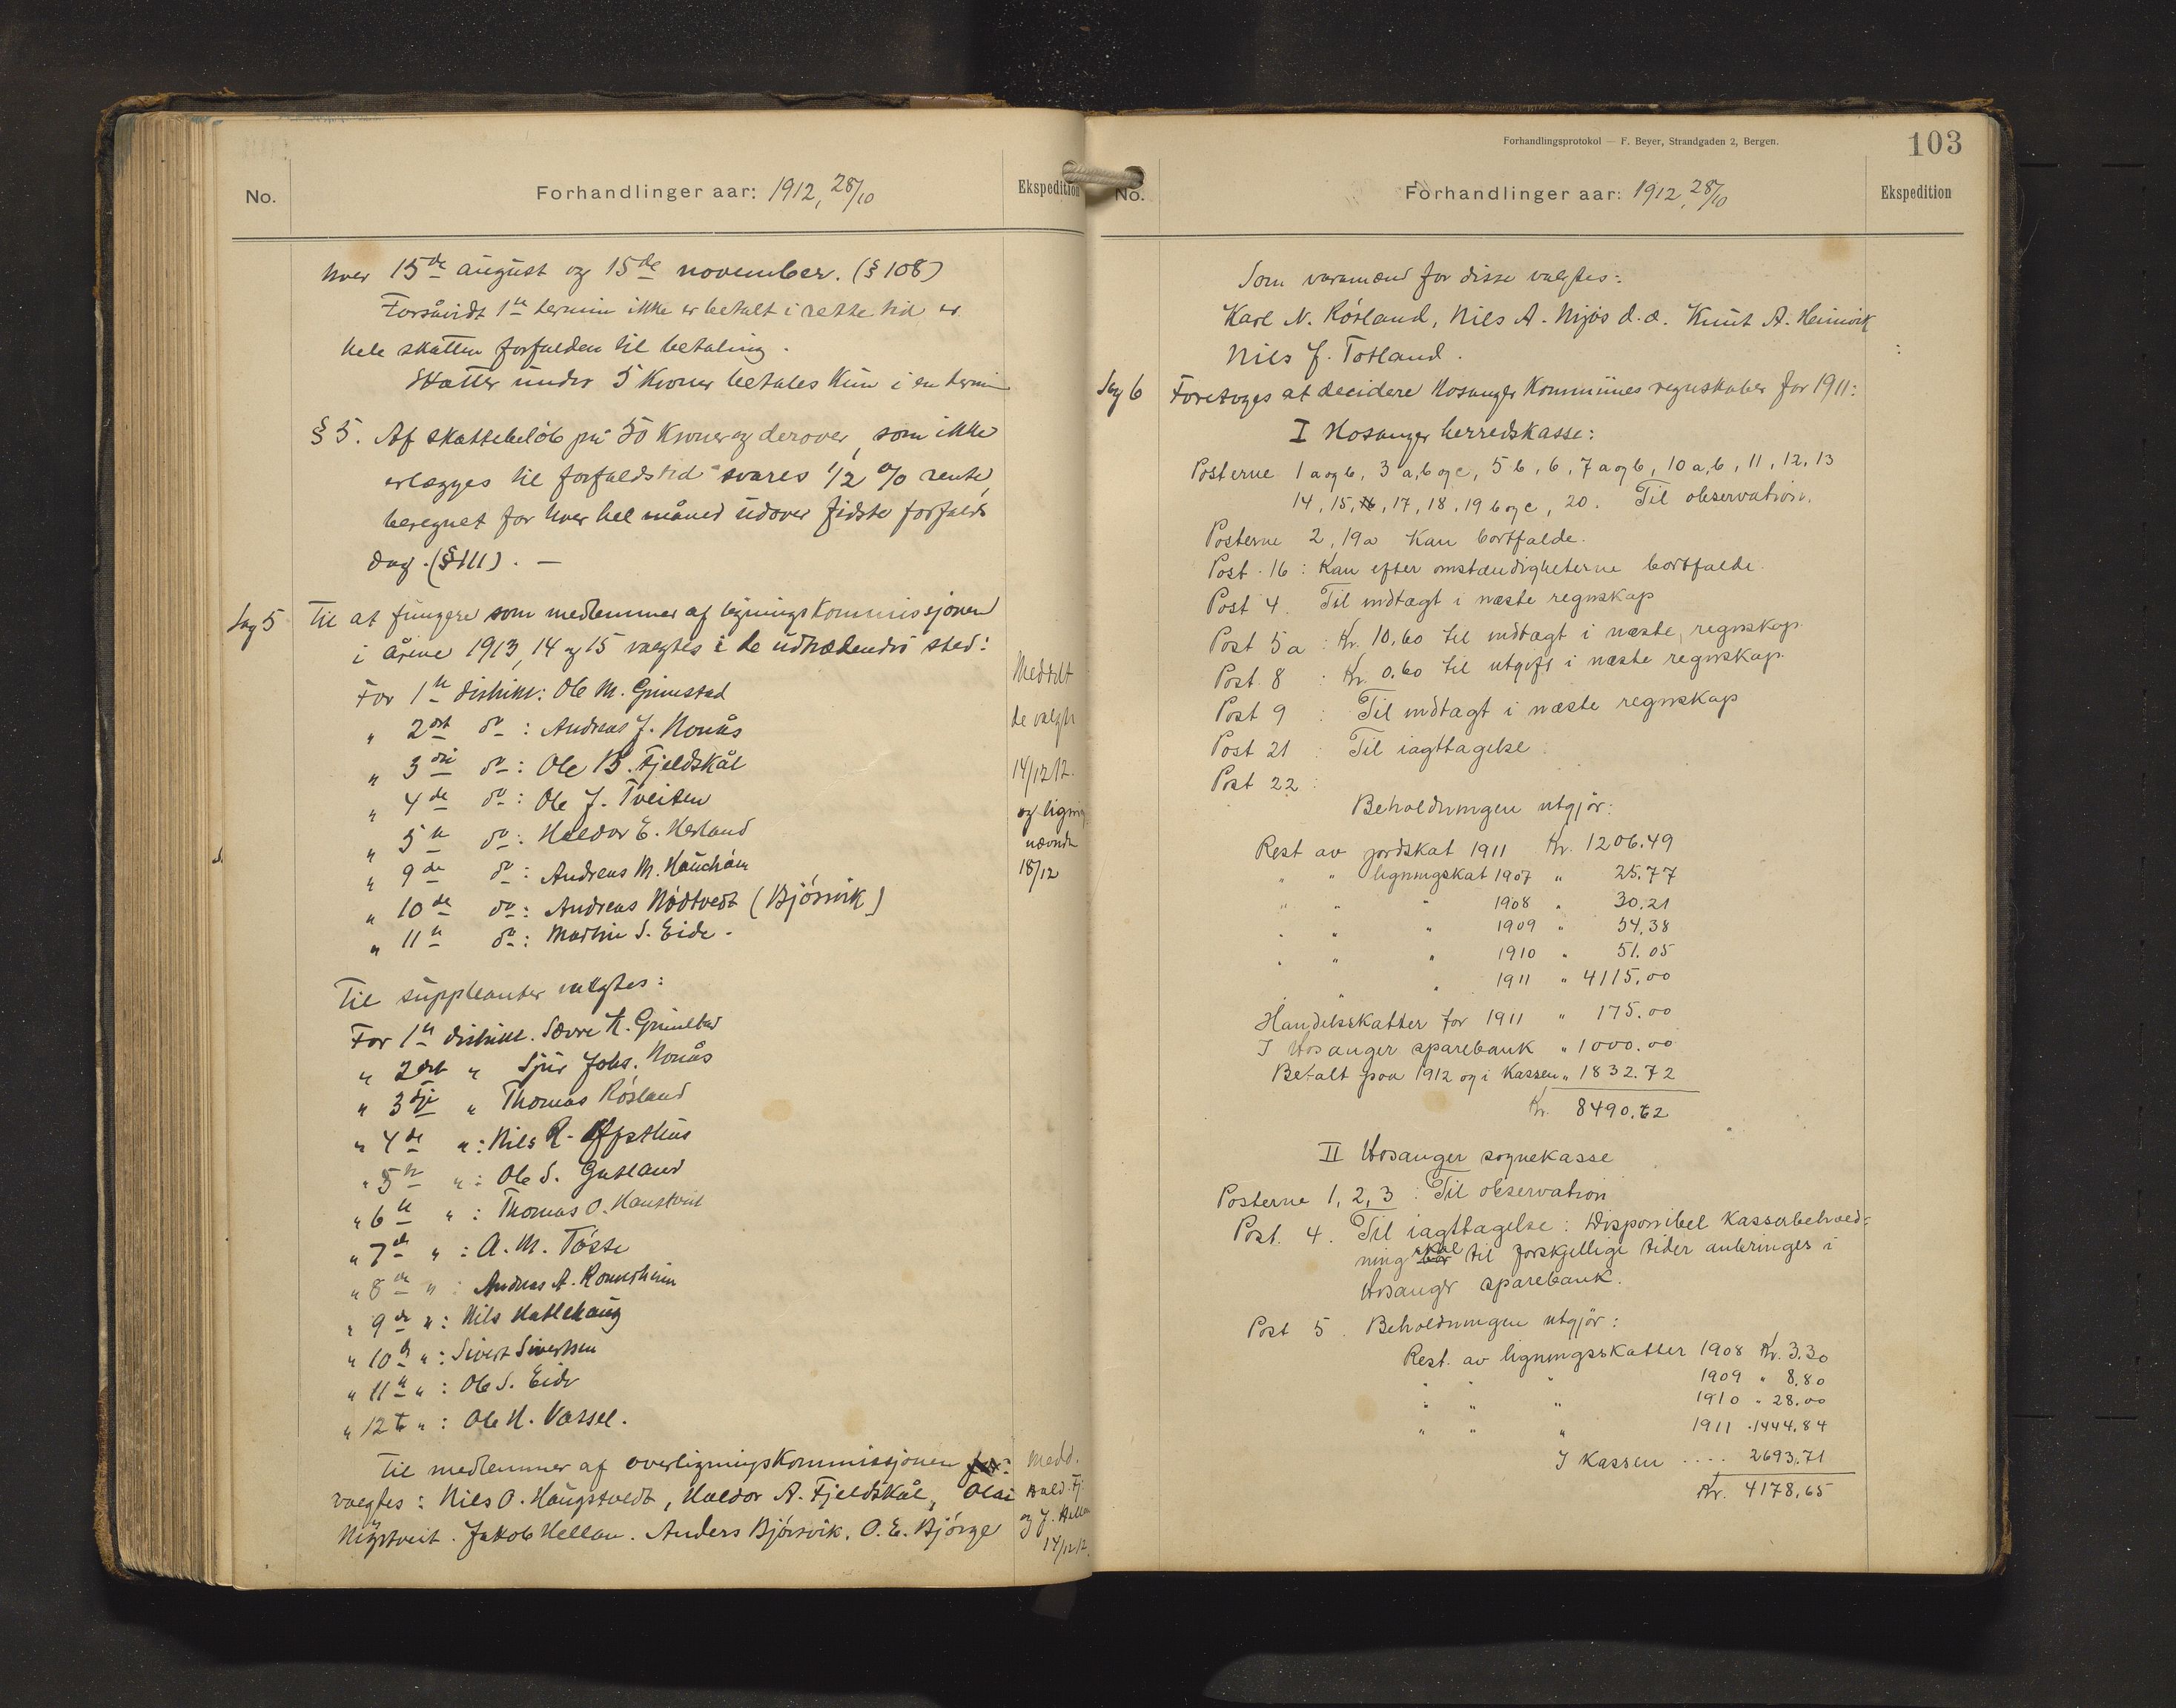 No.
Forhandlinger aar: 1912, 28/10
Ekspedition
hver 15de august og 15de november. (§ 108)
Forsåvidt 1ste termin ikke er betalt i rette tid er
hele skatten forfalden til betaling.
Skatter under 5 kroner betales kun i en termin
§ 5. Af skattebeløb på 50 kroner og derover, som ikke
erlægges til forfaldstid svares 1/2 % rente,
beregnet for hver hel måned udover sidste forfalds
dag. (§ 111). —
Sag 5 Til at fungere som medlemmer af ligningskommissjonen
i årene 1913, 14 og 15 valgtes i de udtrædendes sted:
For 1ste distrikt: Ole M. Grimstad
" 2det do: Andreas J. Nonås
" 3die do: Ole B. Fjeldskål
" 4de do: Ole J. Tveiten
" 5te do: Haldor E. Herland
" 9de do: Andreas M.
" 10de do: Andreas Nødtvedt (Bjørsvik)
" 11te do: Martin S. Eide.
Meddelt
de valgte
14/12 12.
og lignings
nævnde
18/12
Til suppleanter valgtes:
For 1ste distrikt. Sævre K. Grimstad
" 2det " Sjur Johs. Nonås
" 3dje " Thomas Rösland
" 4de " : Nils R.
" 5te " : Ole S.
" 6te " : Thomas O. Haugstveit
" 7de " : A. M. Tösse
" 8de " : Andreas A.
" 9de " : Nils Hatlehaug
" 10de " : Sivert Sivertsen
" 11te " : Ole S. Eide
" 12te " : Ole N. Vassel.
Til medlemmer af overligningskommissjonen for:
valgtes: Nils O. Haugstvedt, Haldor A. Fjeldskål, Olai
Jakob Hellan. Anders Bjørsvik. O. E. Bjørge
Medd.
Hald. Fj.
og J. Hellan
14/12 12.
Forhandlingsprotokol — F. Beyer, Strandgaden 2, Bergen.
103
No.
Forhandlinger aar: 1912, 28/10
Ekspedition
Som varamænd for disse valgtes:
Karl N. Rösland, Nils A. Mjös d. æ. Knut A. Heimvik
Nils J. Totland.
Sag 6 Foretoges at decidere Hosanger Kommunes regnskaber for 1911:
I Hosanger herredskasse:
Posterne 1 a og b, 3 a, b og c, 5 b, 6, 7 a og b, 10 a, b, 11, 12, 13
14, 15, 16, 17, 18, 19 b og c, 20. Til observation.
Posterne 2, 19a kan bortfalde.
Post 16: Kan efter omstændigheterne bortfalde.
Post 4. Til indtægt i næste regnskap
Post 5a: Kr. 10,60 til indtægt i næste regnskap.
Post 8 : Kr. 0.60 til utgift i næste regnskap.
Post 9 : Til indtægt i næste regnskap
Post 21 : Til iagttagelse.
Post 22 :
Beholdningen utgjør:
Rest av jordskat 1911 Kr. 1206.49
" " ligningskat 1907 " 25.77
" " " 1908 " 30.21
" " " 1909 " 54.38
" " " 1910 " 51.05
" " 1911 " 4115.00
Handelsskatter for 1911 " 175.00
I Hosanger sparebank " 1000.00
Betalt paa 1912 og i Kassen " 1832.72
Kr. 8490.62
II Hosanger sognekasse
Posterne 1, 2, 3 : Til observation
Post. 4. Til iagttagelse: Disponibel kassebehold=
ning bør skal til forskjellige tider anbringes i
Hosanger sparebank.
Post 5. Beholdningen utgjør:
Rest. av ligningsskatter 1908 Kr. 3.30
" " " 1909 " 8.80
1910 " 28.00
" " " 1911 " 1444.84
I Kassen .... 2693.71
Kr. 4178.65